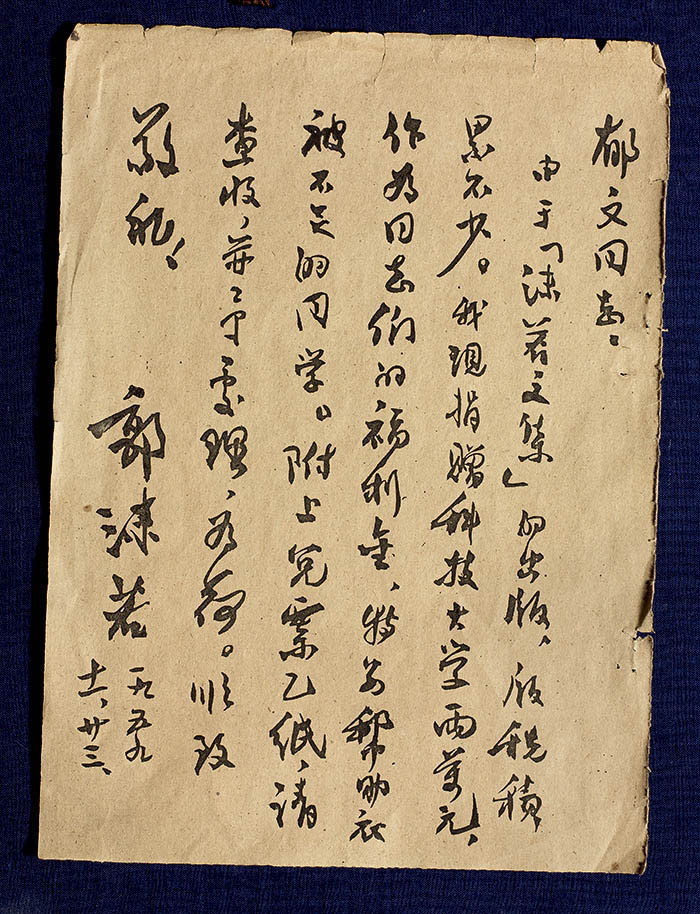 郁文同志：
由于「沫若文集」的出版，版税积
累不少。我现捐赠科技大学两萬元，
作为同志们的福利金，特 帮助衣
被不足的同学。附上兑票乙纸，请
查收，并予处理，为荷。顺致
敬礼！
郭沫若
一九五九
十一、廿三、